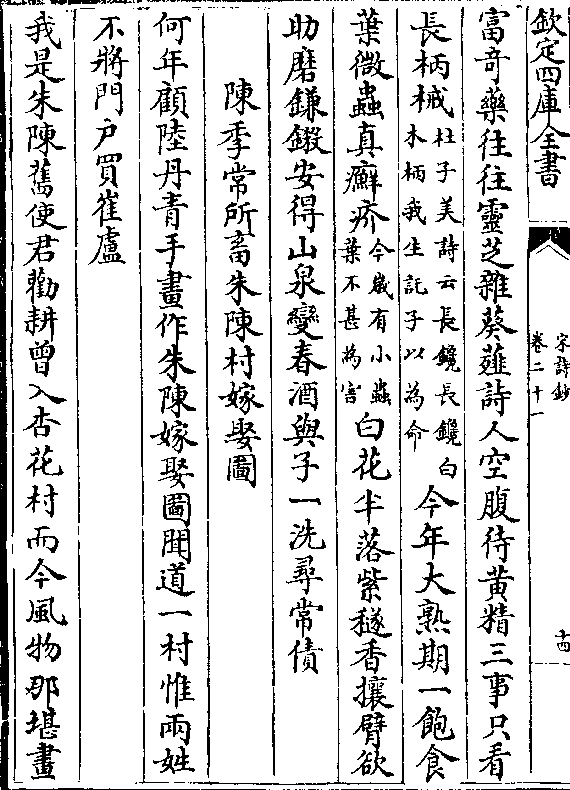 欽定四庫全書
宋詩鈔
卷二十一
十四
富奇藥往往靈芝雜葵薤詩人空腹待黄精三事只看
長柄械杜子美詩云長鑱長鑱白木柄我生託子以為命今年大熟期一飽食
葉微蟲真癬疥今嵗有小蟲葉不甚為害白花半落紫穟香攘臂欲
助磨鎌鎩安得山泉變春酒與子一洗尋常債
陳季常所畜朱陳村嫁娶圖
何年顧陸丹青手畫作朱陳嫁娶圖聞道一村惟兩姓
不將門户買崔盧
我是朱陳舊使君勸耕曾入杏花村而今風物那堪畫